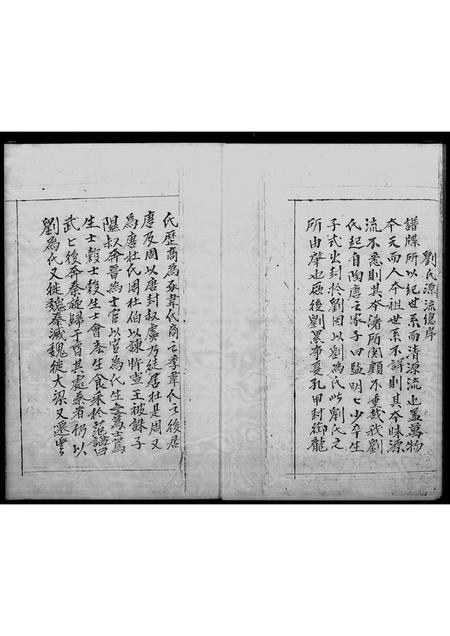 劉氏源流總序
譜牒所以紀世系而清源流也蓋萬物
本天而人本祖世系不講則其本昧源
流不悉則其本淆所関顧不重哉我劉
氏起自陶唐之承子曰監明七少卒生
子式出封於劉因以劉為氏此劉氏之
所由肇也厥後劉累事夏孔甲封御龍
氏歷商為豕韋氏商之季韋氏之後居
唐及周以唐封叔虞乃徒居杜是周又
為唐杜氏周杜伯以諫忤宣王被誅子
隰叔奔晉為士官以官為氏生士蒍士蒍
生士縠士縠生士會会生食采於范諡曰
武七後奔秦旋歸于晉其處秦者仍以
劉為氏又徙魏秦滅魏徙大梁又遷豐